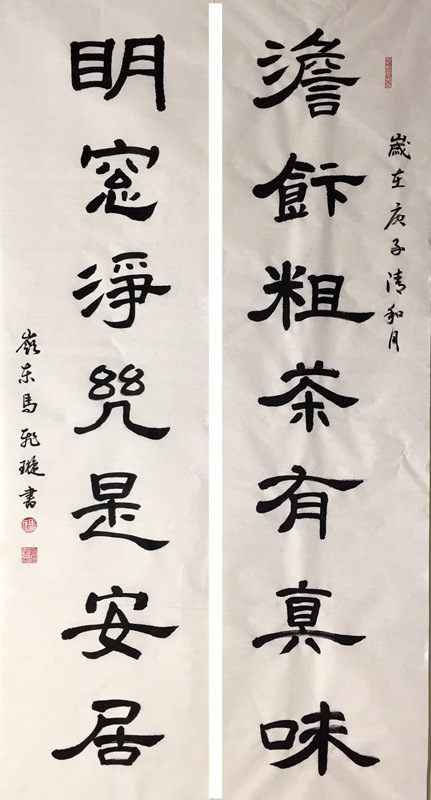 歲在庚子清和月
澹飰粗茶有真味
眀窓淨几是安居
嶺东馬飛璇書